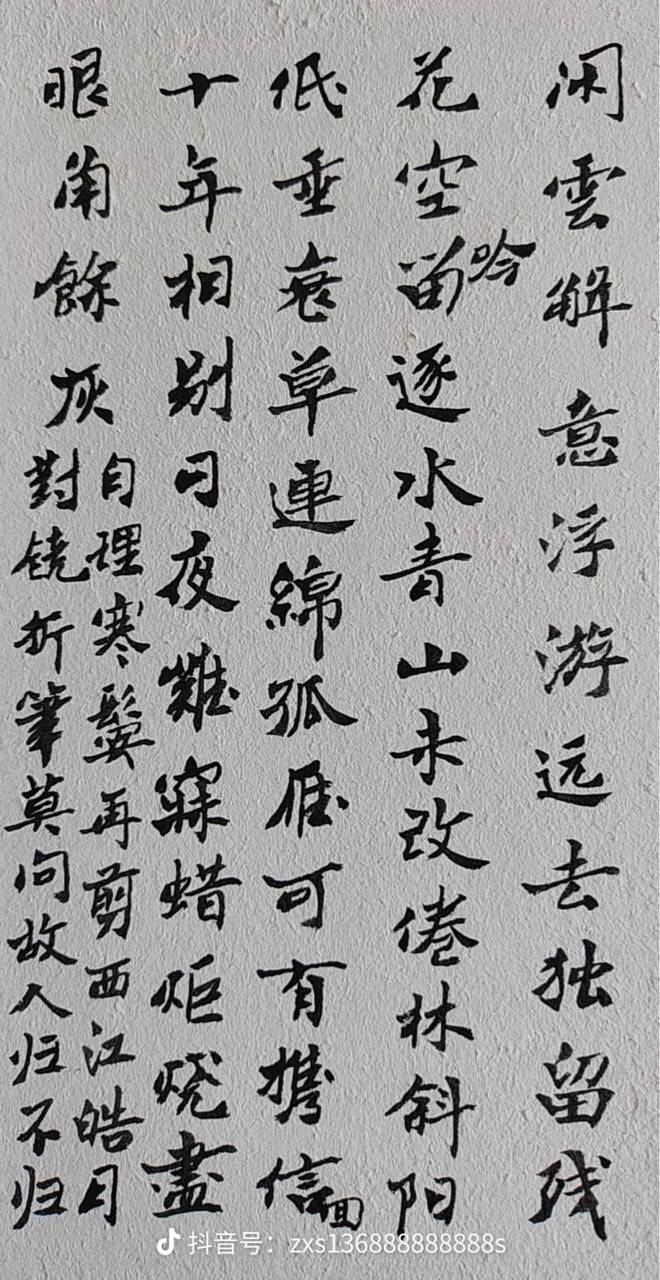 闲雲解意浮游远去独留残
花空留吟逐水青山未改倦林斜阳
低垂衰草連綿孤雁可有携信回
十年相别日夜難寐蜡炬烧盡
眼角餘灰
自理寒鬓再剪西江皓月
對镜折筆莫问故人归不归
抖音号：zxs1368888888888s